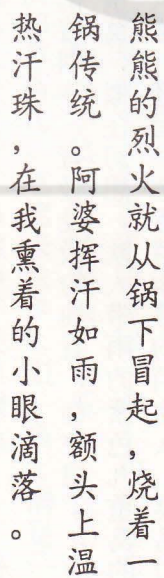 熊熊的烈火就从锅下冒起，烧着一
锅传统。阿婆挥汗如雨，额头上温
热汗珠，在我熏着的小眼滴落。